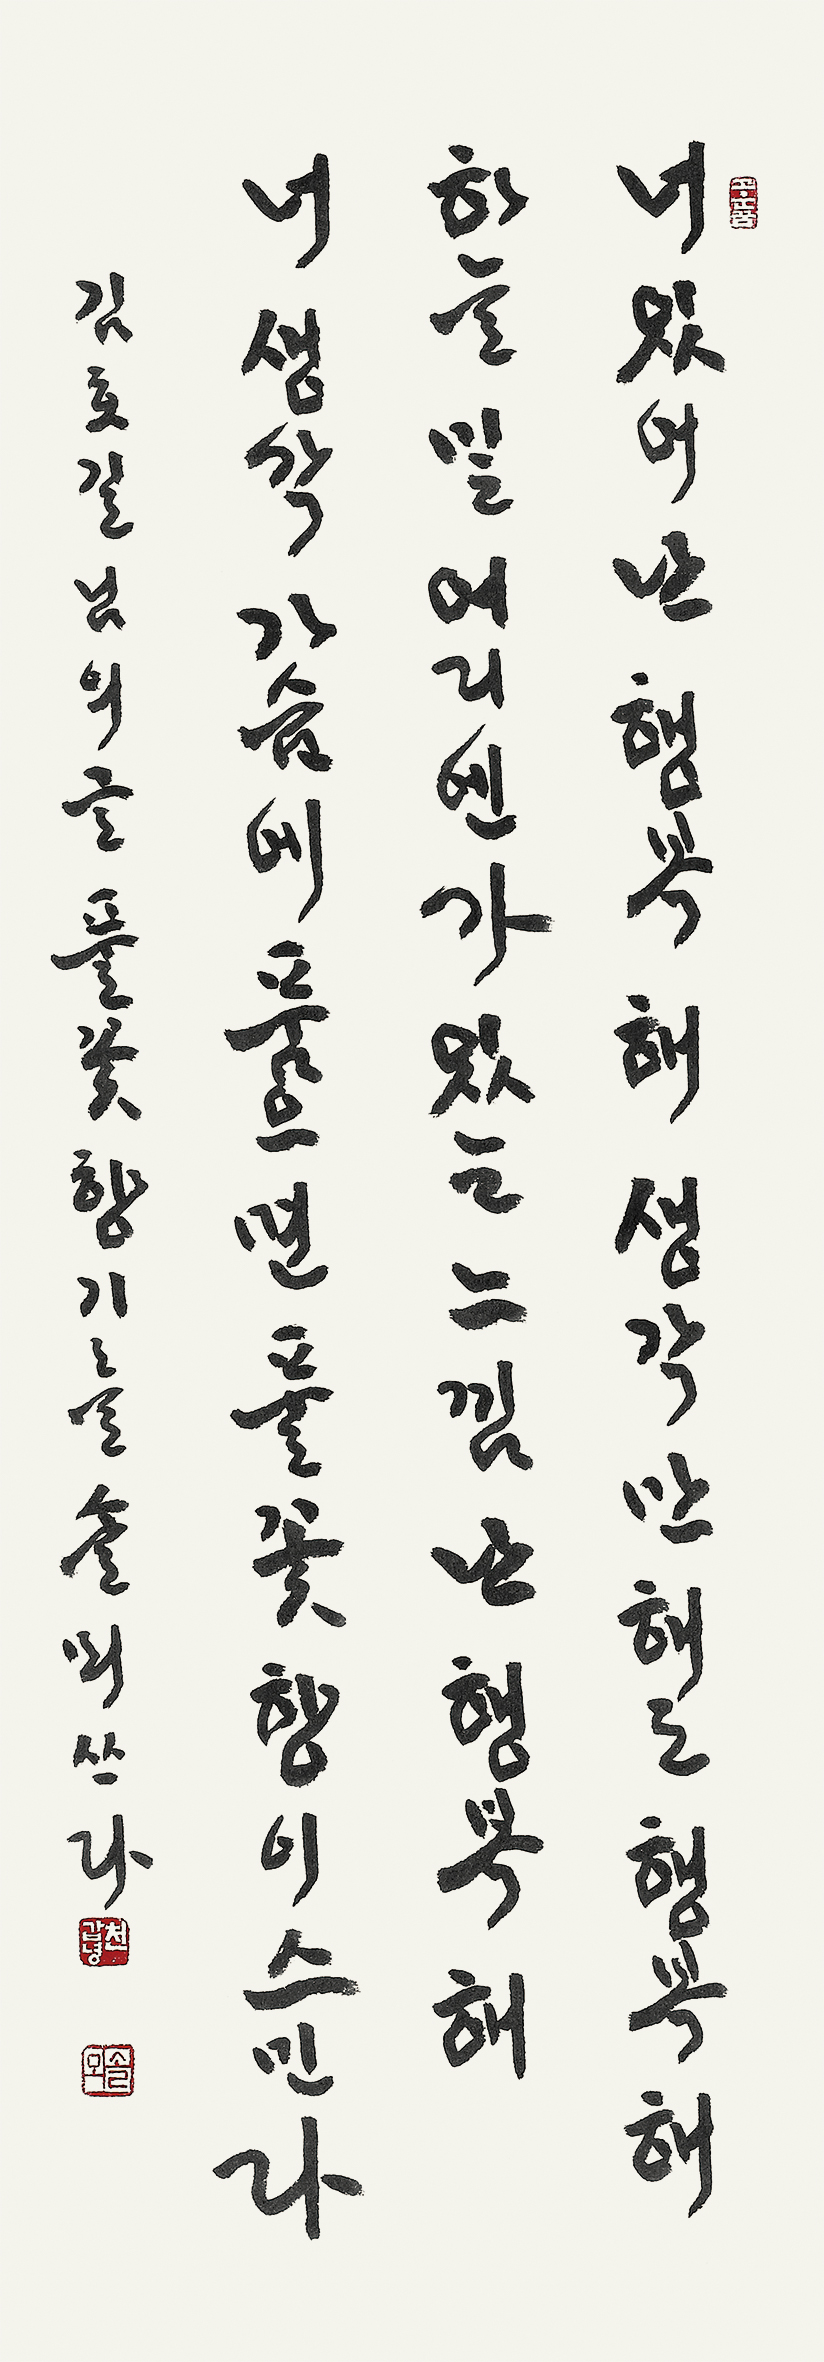 너 있어 난 행복 해 생각만 해도 행복 해
하늘 밑 어디엔가 있는 느낌 난 행복 해
너 생각 가슴에 품으면 풀꽃 향이 스민다
김효길님의 글 풀꽃 향기를 솔뫼 쓰다
천갑녕
솔뫼